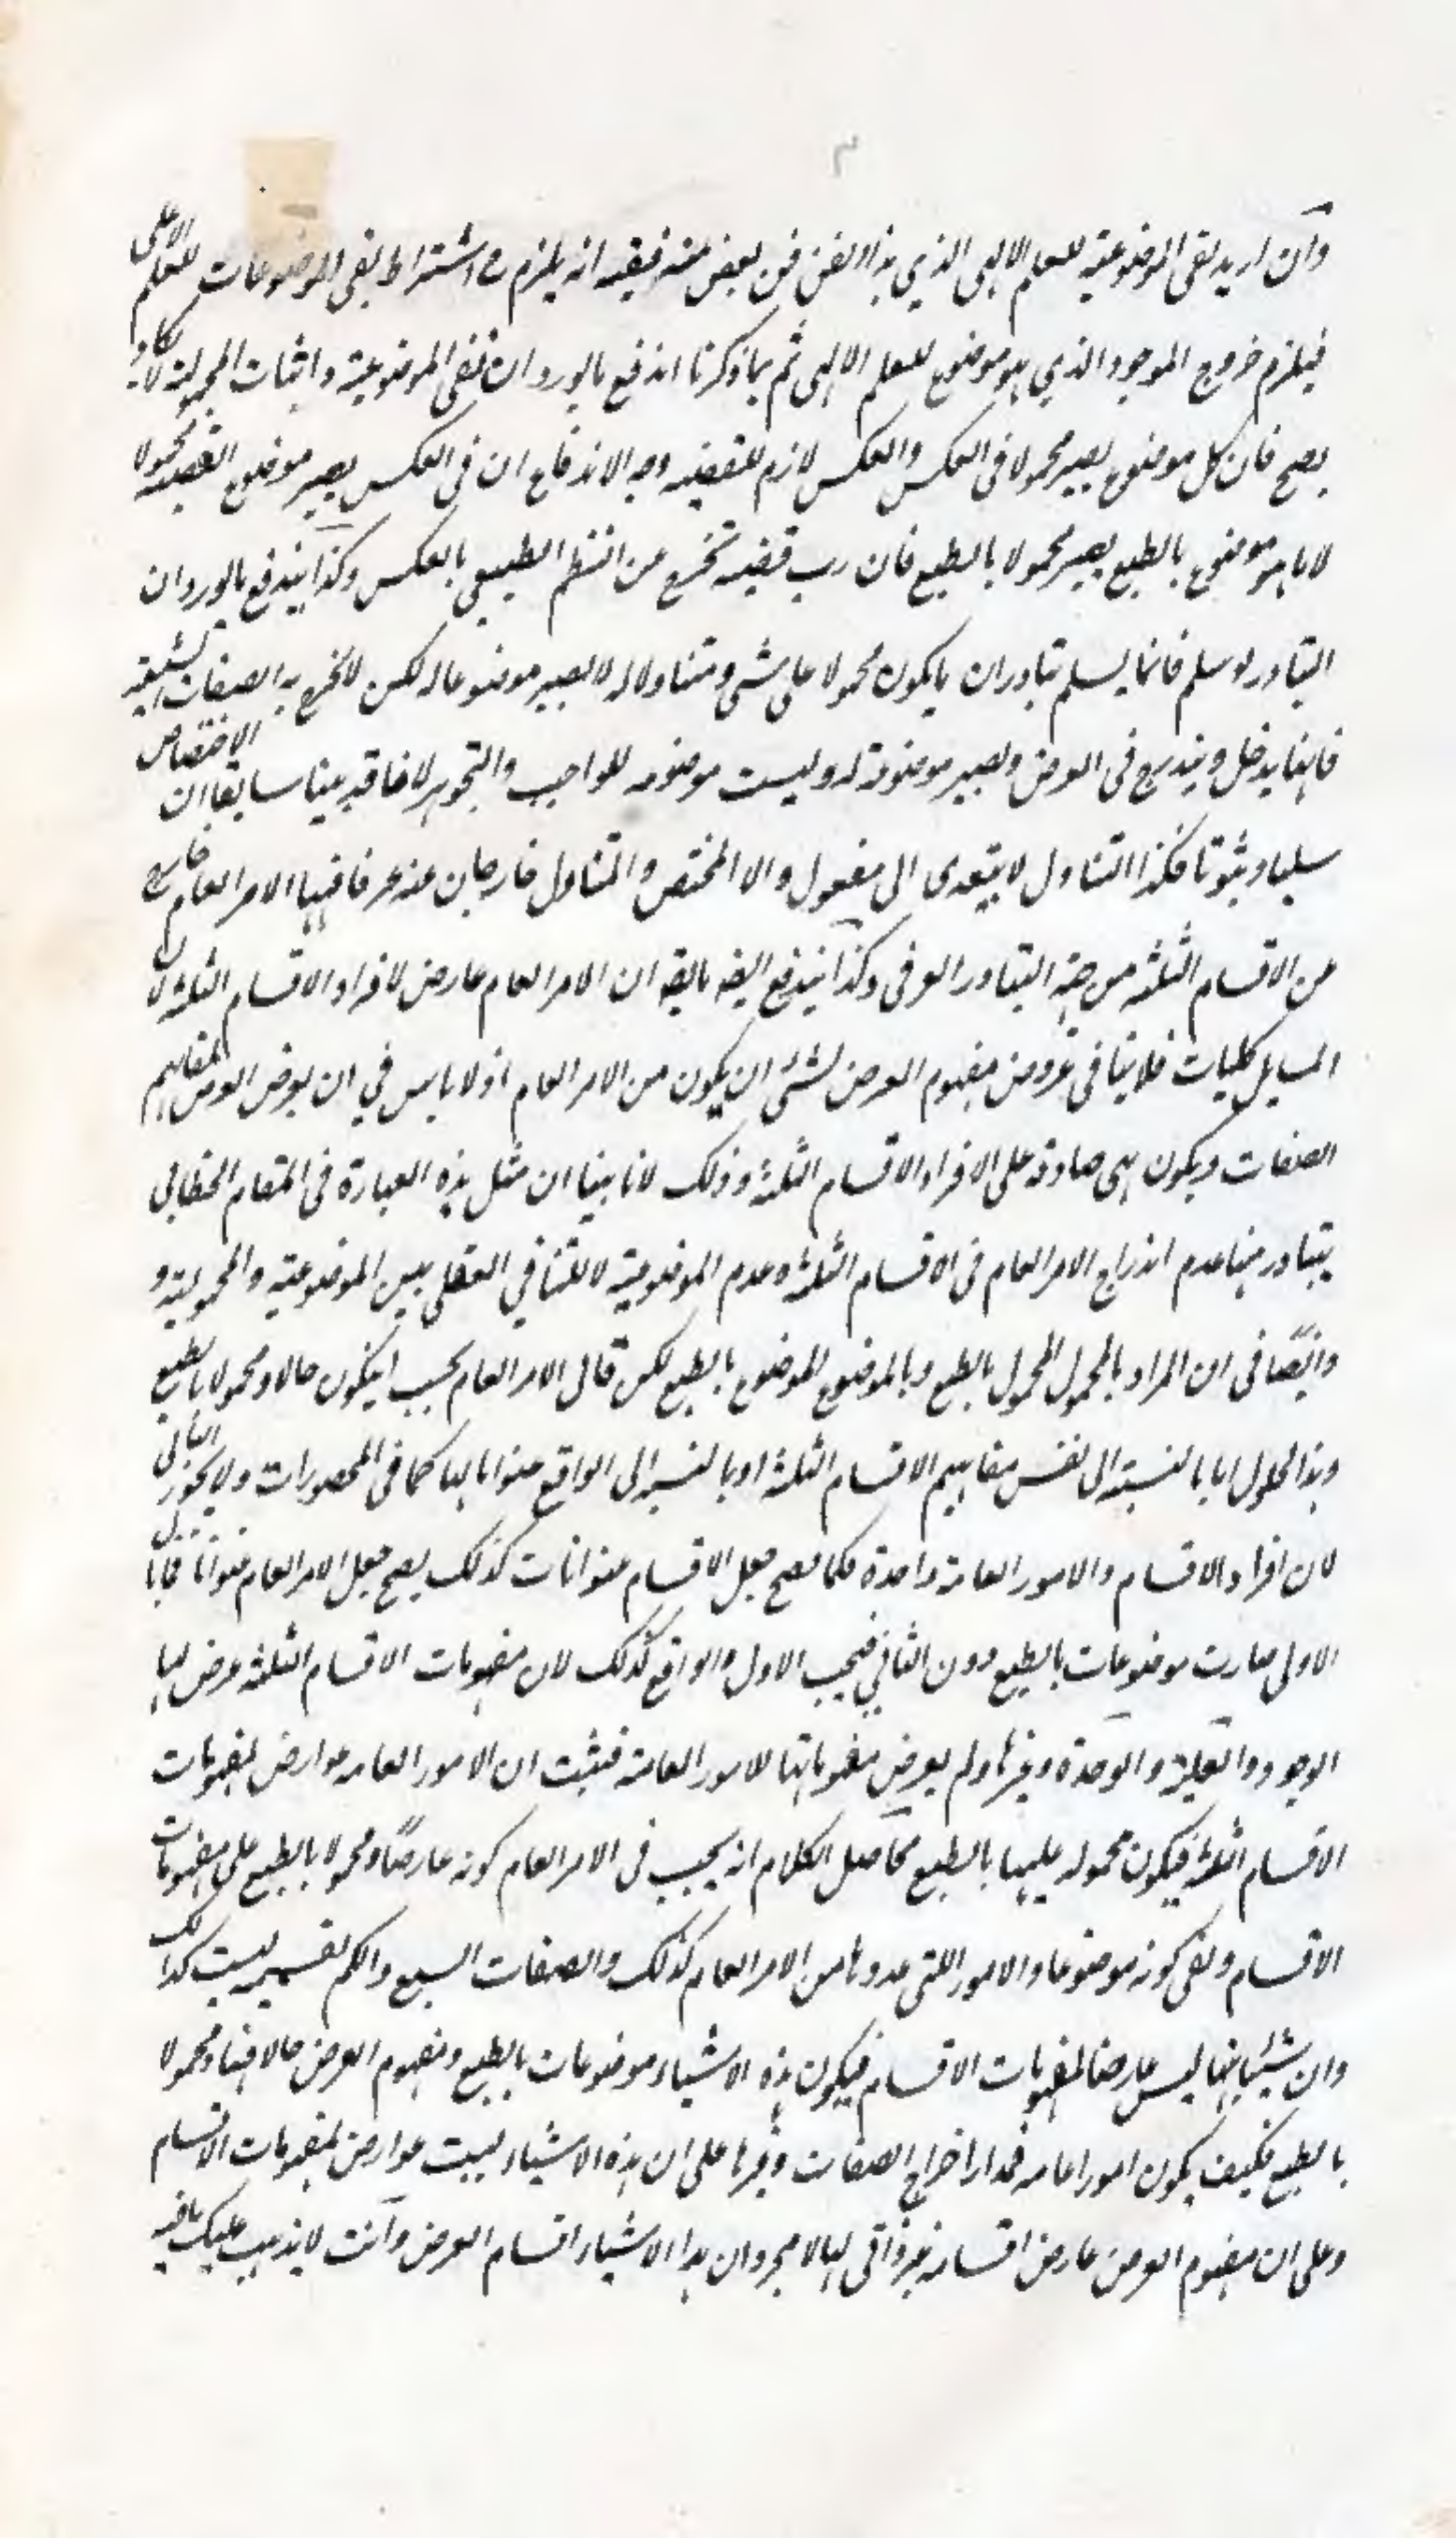 ٣
وان اريد نفى الموضوعية للعلم الالهى الذي هذا الفن فن بعض منه ففيه انه يلزم ح اشتراط نفى الموضوعات للعلم الاعلى
فيلزم خروج الموجود الذي هو موضوع للعلم الالهى ثم بما ذكرنا اندفع ما يورد ان نفى الموضوعية واثبات المحمولية لا يكاد
يصح فان كل موضوع يصير محمولا فى العكس والعكس لازم للقضية وجه الاندفاع ان فى العكس يصير موضوع القضية محمولا
لا ما هو موضوع بالطبع يصير محمولا بالطبع فان رب قضية تخرج عن النظم الطبيعى بالعكس وكذا يندفع ما يورد ان
التبادر لو سلم فانما يسلم تبادر ان ما يكون محمولا على شئ ومتناولا له لا يصير موضوعا له لكن لا تخرج به الصفات
فانها يدخل ويندرج فى العرض ويصير موضوعة له وليست موضوعه للواجب والجوهر لانا قد بينا سابقا ان الاختصاص
سلبا وثبوتا فكذا التناول لا يتعدى الى مفعول والا المختص والمتناول خارجان عنه عرفا الامر العام خارج
عن الاقسام الثلثة من جهة التبادر العرفى وكذا يندفع ايضه ما يقه ان الامر العام عارض لافراد الاقسام الثلثة لان
المسايل كليات فلا ينافى عروض مفهوم العرض لشئ ان يكون من الامر العام اذ لا باس في ان يعرض العرض لمفاهيم
الصفات ويكون هى صادقة على الافراد الاقسام الثلثة وذلك لانا بينا ان مثل هذه العبارة فى المقام الخطابى
يتبادر منها عدم اندراج الامر العام فى الاقسام الثلثة وعدم الموضوعية لا للتنافي العقلى بين الموضوعية والمحمولية و
وايضًا فى ان المراد بالمحمول المحمول بالطبع وبالموضوع الموضوع بالطبع لكن قال الامر العام يجب ان يكون حالا ومحمولا بالطبع
وهذا الحلول اما بالنسبة الى نفس مفاهيم الاقسام الثلثة او بالنسبة الى الواقع عنوانا لها كما فى المحصورات ولا يجوز الثانى
لان افراد الاقسام والامور العامة واحدة فكما يصح جعل الاقسام عنوانات كذلك يصح جعل الامر العام عنوانا
الاولى صارت موضوعات بالطبع دون الثاني فيجب الاول والواقع كذلك لان مفهومات الاقسام الثلثة عرض لها
الوجود والعلية والوحدة وغيرها ولم يعرض مفهوماتها للامور العامة فثبت ان الامور العامه عوارض لمفهومات
الاقسام الثلثة فيكون محموله عليها بالطبع محاصل الكلام انه يجب فى الامر العام كونه عارضًا ومحمولا بالطبع على مفهومات
الاقسام ونفى كونه موضوعا والامور اللتى عدوها من الامر العام كذلك والصفات السبع والكم ليست كذلك
وان شيئا منها ليس عارضا لمفهومات الاقسام فيكون هذه الاشياء موضوعات بالطبع ومفهوم العرض حالا فيها ومحمولا
بالطبع فكيف يكون امورا عامه فمدار اخراج الصفات وغيرها على ان هذه الاشياء ليست عوارض لمفهومات الاقسام
وعلى ان مفهوم العرض عارض اقسامه غير ذاتى لها لا مجرد ان هذا الاشياء اقسام العرض وانت لا يذهب عليك ما فيه